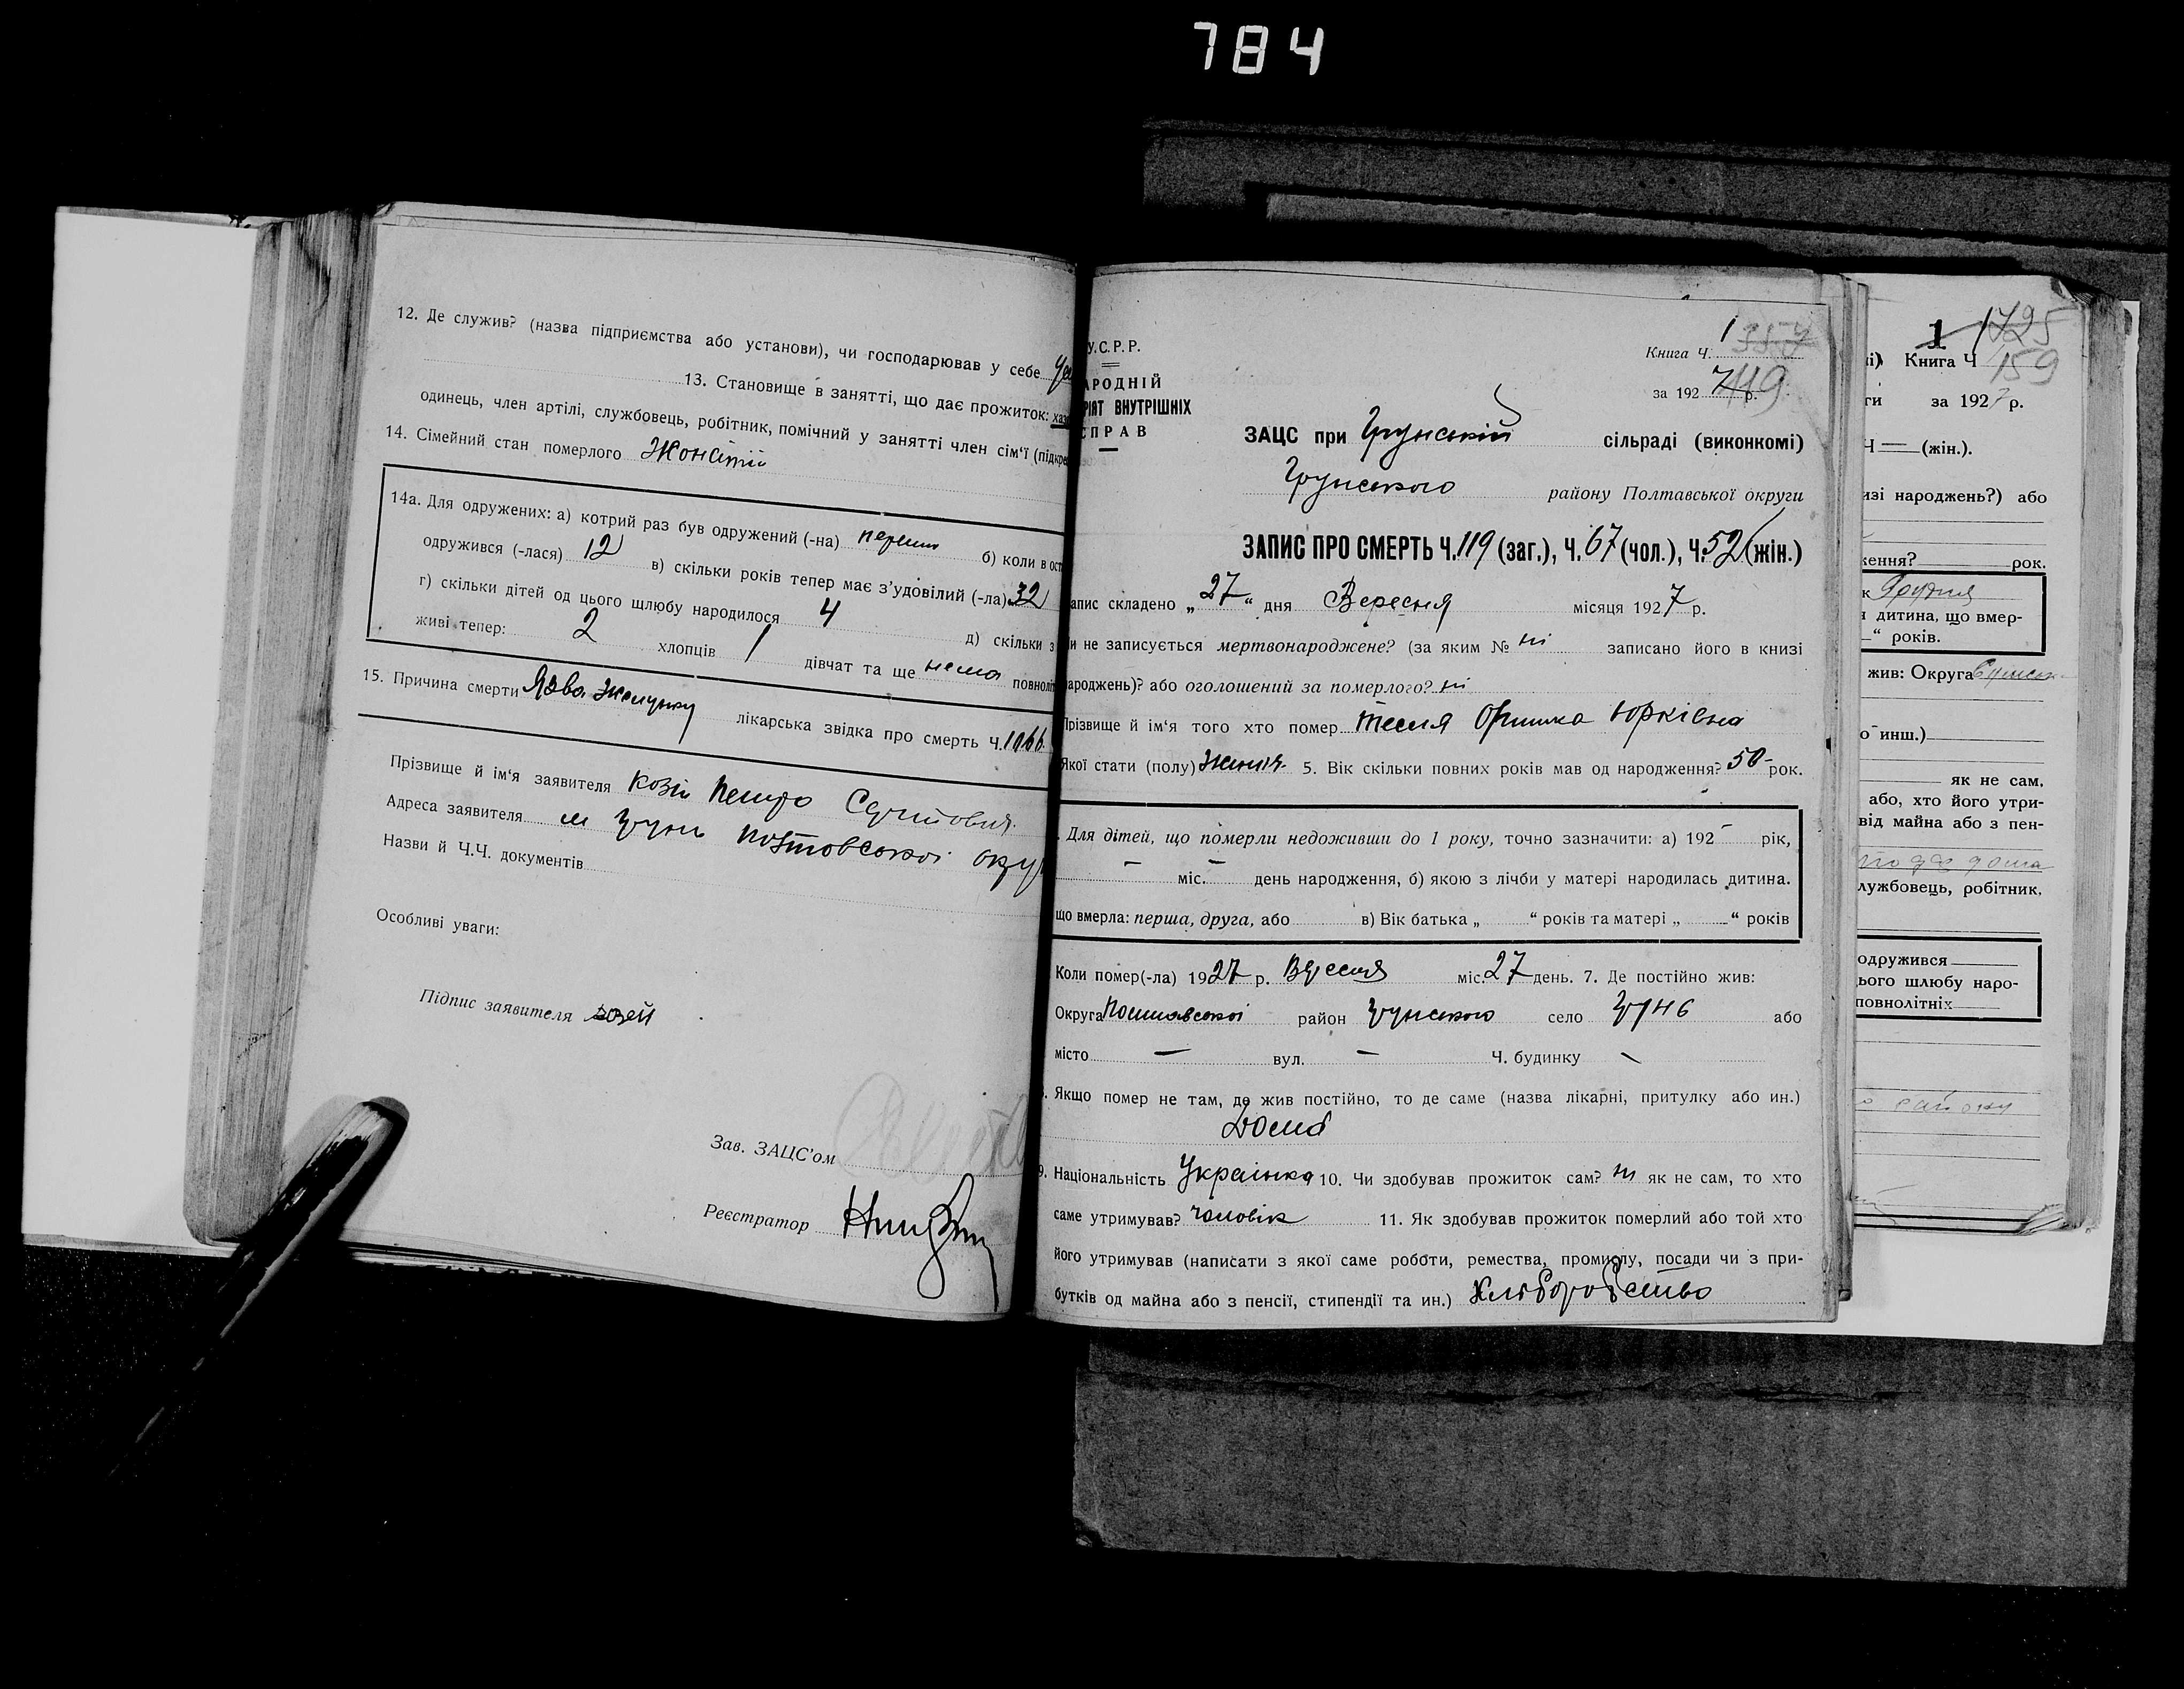 784
12. Де служив? (назва підприємства або установи), чи господарював у себе
13. Становище в занятті, що дає прожиток: хаз
одинець, член артілі, службовець, робітник, помічний у занятті член сім'ї (підкре
14. Сімейний стан померлого Жонатий
14а. Для одружених: а) котрий раз був одружений (-на) перший б) коли в ост
одружився (-лася) 12 в) скільки років тепер має з'удовілий (-ла) 32
г) скільки дітей од цього щлюбу народилося 4 д) скільки з
живі тепер: 2 хлопців 1 дівчат та ще нема повноліт
15. Причина смерти Язва желудку лікарська звідка про смерть Ч. 1066
Прізвище й ім'я заявителя Козій Петро
Адреса заявителя м Грунь Полтавської окру
Назви й Ч.Ч. документів
Особливі уваги:
Підпис заявителя Козей
Зав. ЗАЦС'ом
Реєстратор
У.С.Р.Р.
АРОДНІЙ
РІЯТ ВНУТРІШНІХ
СПРАВ
Книга Ч. 1
за 1927 р. 119
ЗАЦС при Грунській сільраді (виконкомі)
Грунського району Полтавської округи
ЗАПИС ПРО СМЕРТЬ Ч. 119 (заг.), Ч. 67 (чол.), Ч. 52 (жін.)
апис складено „27“ дня Вересня місяця 1927 р.
и не записується мертвонароджене? (за яким № ні записано його в книзі
ароджень)? або оголошений за померлого? ні
Прізвище й ім'я того хто помер Тесля Оришка Юрківна
Якої стати (полу) 5. Вік скільки повних років мав од народження? 50 рок.
. Для дітей, що померли недоживши до 1 року, точно зазначити: а) 192- рік,
– міс. – день народження, б) якою з лічби у матері народилась дитина.
що вмерла: перша, друга, або в) Вік батька „ “ років та матері „ “ років
Коли помер(-ла) 1927 р. Вересня міс. 27 день. 7. Де постійно жив:
Округа Полтавської район Грунського село Грунь або
місто – вул. – Ч. будинку –
. Якщо помер не там, де жив постійно, то де саме (назва лікарні, притулку або ин.)
Дома
9. Національність Українка 10. Чи здобував прожиток сам? ні як не сам, то хто
саме утримував? чоловік 11. Як здобував прожиток померлий або той хто
його утримував (написати з якої саме роботи, ремества, промислу, посади чи з при-
бутків од майна або з пенсії, стипендії та ин.) Хліборобство
1 1725
і) Книга Ч 159
ги за 1927 р.
Ч — (жін.).
изі народжень?) або
ження? рок.
к Грудня
я дитина, що вмер-
“ років.
жив: Округа
о инш.)
як не сам,
або, хто його утри-
від майна або з пен-
лужбовець, робітник,
одружився
ього шлюбу наро-
повнолітніх